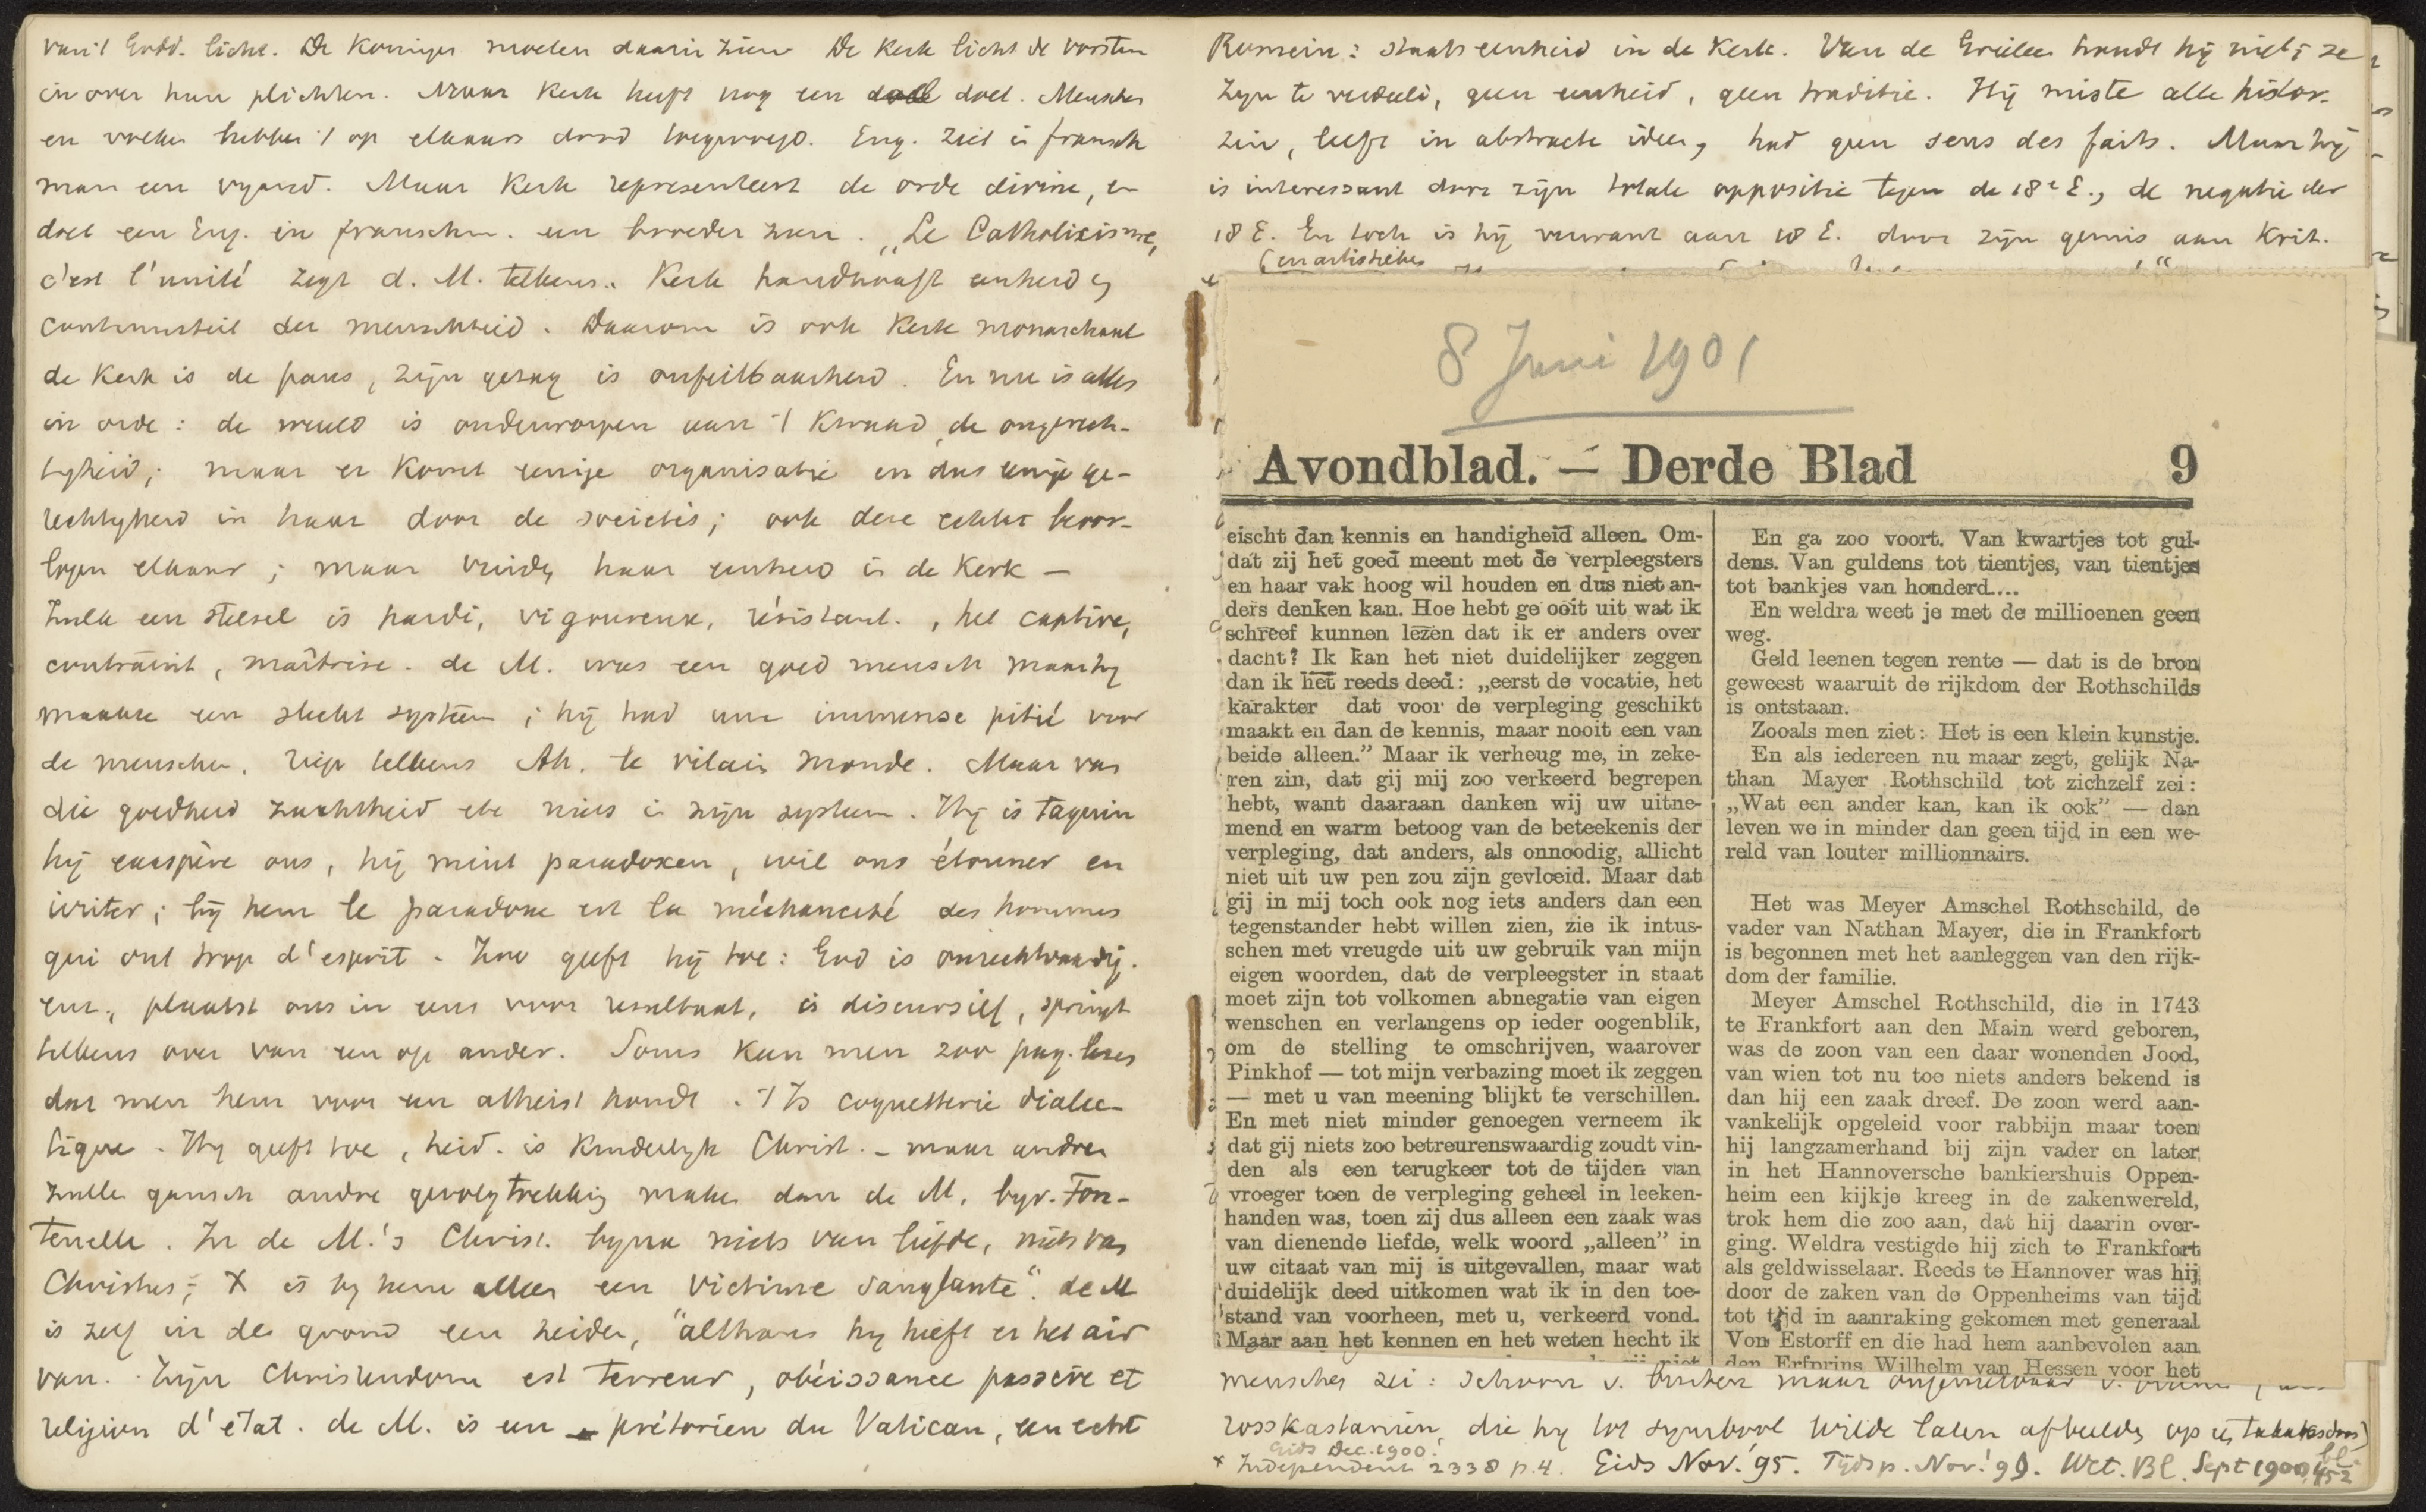 van 't Godd. licht. De Koningen moeten daarin zien De Kerk licht de vorsten
in over hun plichten. Maar Kerk heeft nog een doel. Menschen
en volken hebben 't op elkaars dood toegelegd. Eng. ziet in fransch
man een vyand. Maar Kerk representeert de orde divine, en
doet een Eng. in franschm. een broeder zien. „Le Catholicisme,
c'est l'unité zegt d. M. telkens. Kerk handhaaft eenheid en
continuiteit der menschheid. Daarom is ook Kerk monarchaal
de Kerk is de paus, zijn gezag is onfeilbaarheid. En nu is alles
in orde: de wereld is onderworpen aan 't Kwaad, de ongerech-
tigheid; maar er komt eenige organisatie en dus eenige ge-
rechtigheid in haar door de societés; ook deze
elkaar; maar haar eenheid in de Kerk —
Zulk een stelsel is hardi, vigoureux, résistant. , het captive,
contraint, maîtrise. de M. was een goed mensch maar hij
maakte een slecht systeem; hij had une immense pitié voor
de menschen. riep telkens Ah. le vilain monde. Maar van
die goedheid zachtheid etc niets in zijn systeem. Hij is taquin
hij exaspère ons, hij mint paradoxen, wil ons étonner en
irriter; bij hem le paradoxe est la méchanceté des hommes
qui ont trop d'esprit. Zoo geeft hij toe: God is onrechtvaardig.
enz., plaatst ons in eens voor resultaat, is discursief, springt
telkens over van een op ander. Soms kan men zoo pag. lezen
dat men hem voor een atheist houdt. 't Is coquetterie dialec-
tique. Hij geeft toe, heid. is Kinderlijk Christ. – maar andren
zulln gansch andre gevolgtrekking maken dan de M. byv. Fon-
tenelle. In de M.'s Christ. byna niets van liefde, niets van
Christus; X is by hem alleen een victime sanglante". de M
is zelf in den grond een heiden, "althans hy heeft er het air
van. Zijn Christendom est terreur, obéissance passive et
religion d'état. de M. is een prétorien du Vatican, een echt
Romein: staatseenheid in de Kerk. Van de Grieken houdt hij niet; ze
zijn te verdeeld, geen eenheid, geen traditie. Hij miste alle histor.
zin, leeft in abstracte ideen, had geen sens des faits. Maar hij
is interessant door zijn totale oppositie tegen de 18e E., de negatie der
18 E. En toch is hij verwant aan 18 E. door zijn gemis aan Krit.
(en artistieken
8 Juni 1901
Avondblad. — Derde Blad 9
eischt dan kennis en handigheid alleen. Om-
dat zij het goed meent met de verpleegsters
en haar vak hoog wil houden en dus niet an-
ders denken kan. Hoe hebt ge ooit uit wat ik
schreef kunnen lezen dat ik er anders over
dacht? Ik kan het niet duidelijker zeggen
dan ik het reeds deed: „eerst de vocatie, het
karakter dat voor de verpleging geschikt
maakt en dan de kennis, maar nooit een van
beide alleen.” Maar ik verheug me, in zeke-
ren zin, dat gij mij zoo verkeerd begrepen
hebt, want daaraan danken wij uw uitne-
mend en warm betoog van de beteekenis der
verpleging, dat anders, als onnoodig, allicht
niet uit uw pen zou zijn gevloeid. Maar dat
gij in mij toch ook nog iets anders dan een
tegenstander hebt willen zien, zie ik intus-
schen met vreugde uit uw gebruik van mijn
eigen woorden, dat de verpleegster in staat
moet zijn tot volkomen abnegatie van eigen
wenschen en verlangens op ieder oogenblik,
om de stelling te omschrijven, waarover
Pinkhof — tot mijn verbazing moet ik zeggen
— met u van meening blijkt te verschillen.
En met niet minder genoegen verneem ik
dat gij niets zoo betreurenswaardig zoudt vin-
den als een terugkeer tot de tijden van
vroeger toen de verpleging geheel in leeken-
handen was, toen zij dus alleen een zaak was
van dienende liefde, welk woord „alleen” in
uw citaat van mij is uitgevallen, maar wat
duidelijk deed uitkomen wat ik in den toe-
stand van voorheen, met u, verkeerd vond.
Maar aan het kennen en het weten hecht ik
En ga zoo voort. Van kwartjes tot gul-
dens. Van guldens tot tientjes, van tientjes
tot bankjes van honderd....
En weldra weet je met de millioenen geen
weg.
Geld leenen tegen rente — dat is de bron
geweest waaruit de rijkdom der Rothschilds
is ontstaan.
Zooals men ziet: Het is een klein kunstje.
En als iedereen nu maar zegt, gelijk Na-
than Mayer Rothschild tot zichzelf zei:
„Wat een ander kan, kan ik ook” — dan
leven we in minder dan geen tijd in een we-
reld van louter millionnairs.
Het was Meyer Amschel Rothschild, de
vader van Nathan Mayer, die in Frankfort
is begonnen met het aanleggen van den rijk-
dom der familie.
Meyer Amschel Rothschild, die in 1743
te Frankfort aan den Main werd geboren,
was de zoon van een daar wonenden Jood,
van wien tot nu toe niets anders bekend is
dan hij een zaak dreef. De zoon werd aan-
vankelijk opgeleid voor rabbijn maar toen
hij langzamerhand bij zijn vader en later
in het Hannoversche bankiershuis Oppen-
heim een kijkje kreeg in de zakenwereld,
trok hem die zoo aan, dat hij daarin over-
ging. Weldra vestigde hij zich te Frankfort
als geldwisselaar. Reeds te Hannover was hij
door de zaken van de Oppenheims van tijd
tot tijd in aanraking gekomen met generaal
Von Estorff en die had hem aanbevolen aan
den Erfprins Wilhelm van Hessen voor het
menschen zei: schoon v. buiten maar ongenietbaar v.
rosskastanien, die hij tot symbool wilde laten afbeelden op
Gids Dec. 1900.
x Independent 2338 p. 4. Gids Nov. '95. Tijdsp. Nov. '99. Wet. Bl. Sept 1900, bl. 452